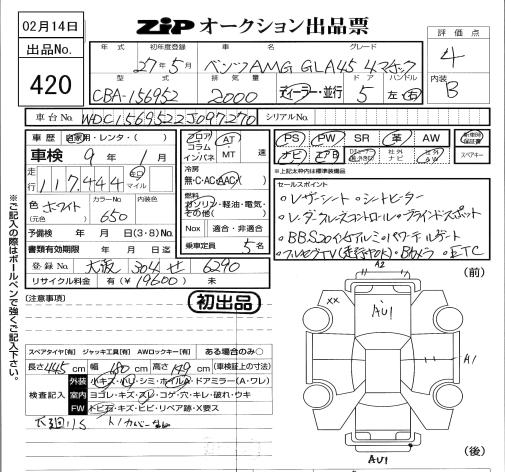 02月14日
出品No.
420
ZIP オークション出品票
年式 初年度登録 車名 グレード
27年5月 ベンツAMG GLA45 4マチック
型式 排気量 ドア ハンドル
CBA-156952 2000 ディーラー・並行 5 左・右
評価点
4
内装
B
車台No. WDC1569522J097270 シリアルNo.
車歴 自家用・レンタ・( )
車検 9年1月
走行 117,444 km マイル
色 ホワイト (元色) カラーNo. 650 内装色
予備検 年 月 日(3・8)No.
書類有効期限 年 月 日迄
登録No. 大阪 304 せ 6290
リサイクル料金 有(¥19600) 未
フロア コラム インパネ AT・MT 速
冷房 無・C・AC・AAC
燃料 ガソリン・軽油・電気・その他( )
Nox 適合・非適合
乗車定員 5名
PS PW SR 革 AW 新車時保証書
ナビ エアB 社外ナビ 社外AW スペアキー
*上記太枠内は標準装備品
セールスポイント
・レザーシート・シートヒーター
・レーダークルーズコントロール・ブラインドスポット
・BBS20インチアルミ・パワーテールゲート
・フルセグTV(走行中OK)・Bカメラ・ETC
ご記入の際はボールペンで強くご記入下さい。
[注意事項]
初出品
(前)
A2
××
AU1
A1
AU1
(後)
スペアタイヤ[有] ジャッキ工具[有] AWロックキー[有] ある場合のみ○
長さ 445 cm 幅 180 cm 高さ 149 cm (車検証上の寸法)
検査記入
外装 小キズ・ハリ・シミ・ホイルA・ドアミラー(A・ワレ)
室内 ヨゴレ・キズ・スレ・コゲ・穴・キレ・破れ・ウキ
FW トビ石・キズ・ヒビ・リペア跡・X要ス
下廻りS